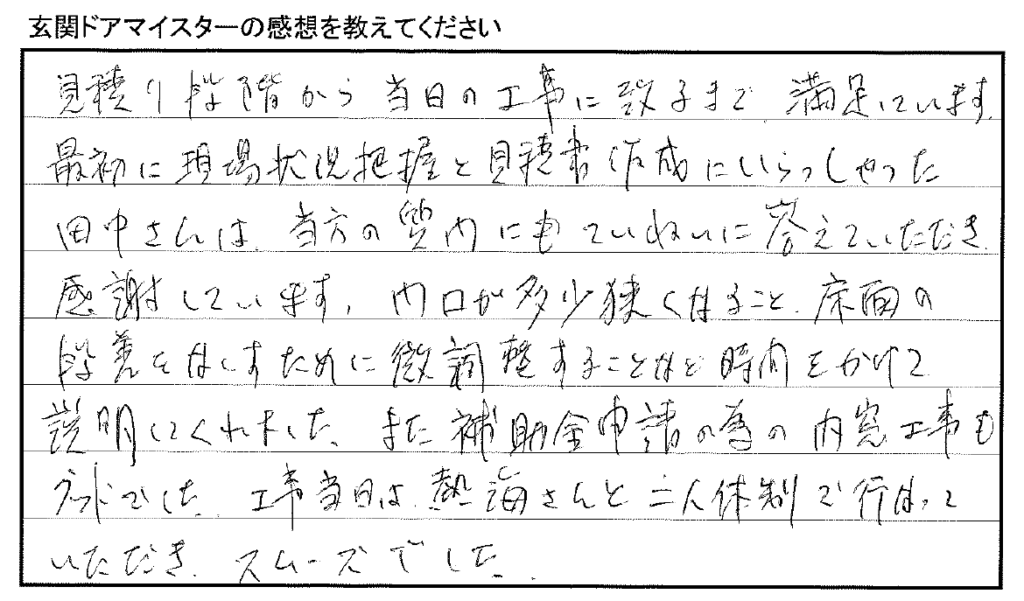 玄関ドアマイスターの感想を教えてください
見積り段階から当日の工事に致るまで、満足しています。
最初に現場状況把握と見積書作成にいらっしゃった
田中さんは、当方の質問にもていねいに答えていただき、
感謝しています。内口が多少狭くなること、床面の
段差をなくすために微調整することなど時間をかけて
説明してくれました。また補助金申請の為の内窓工事も
グッドでした。工事当日は、熱海さんと二人体制で行なって
いただき、スムーズでした。